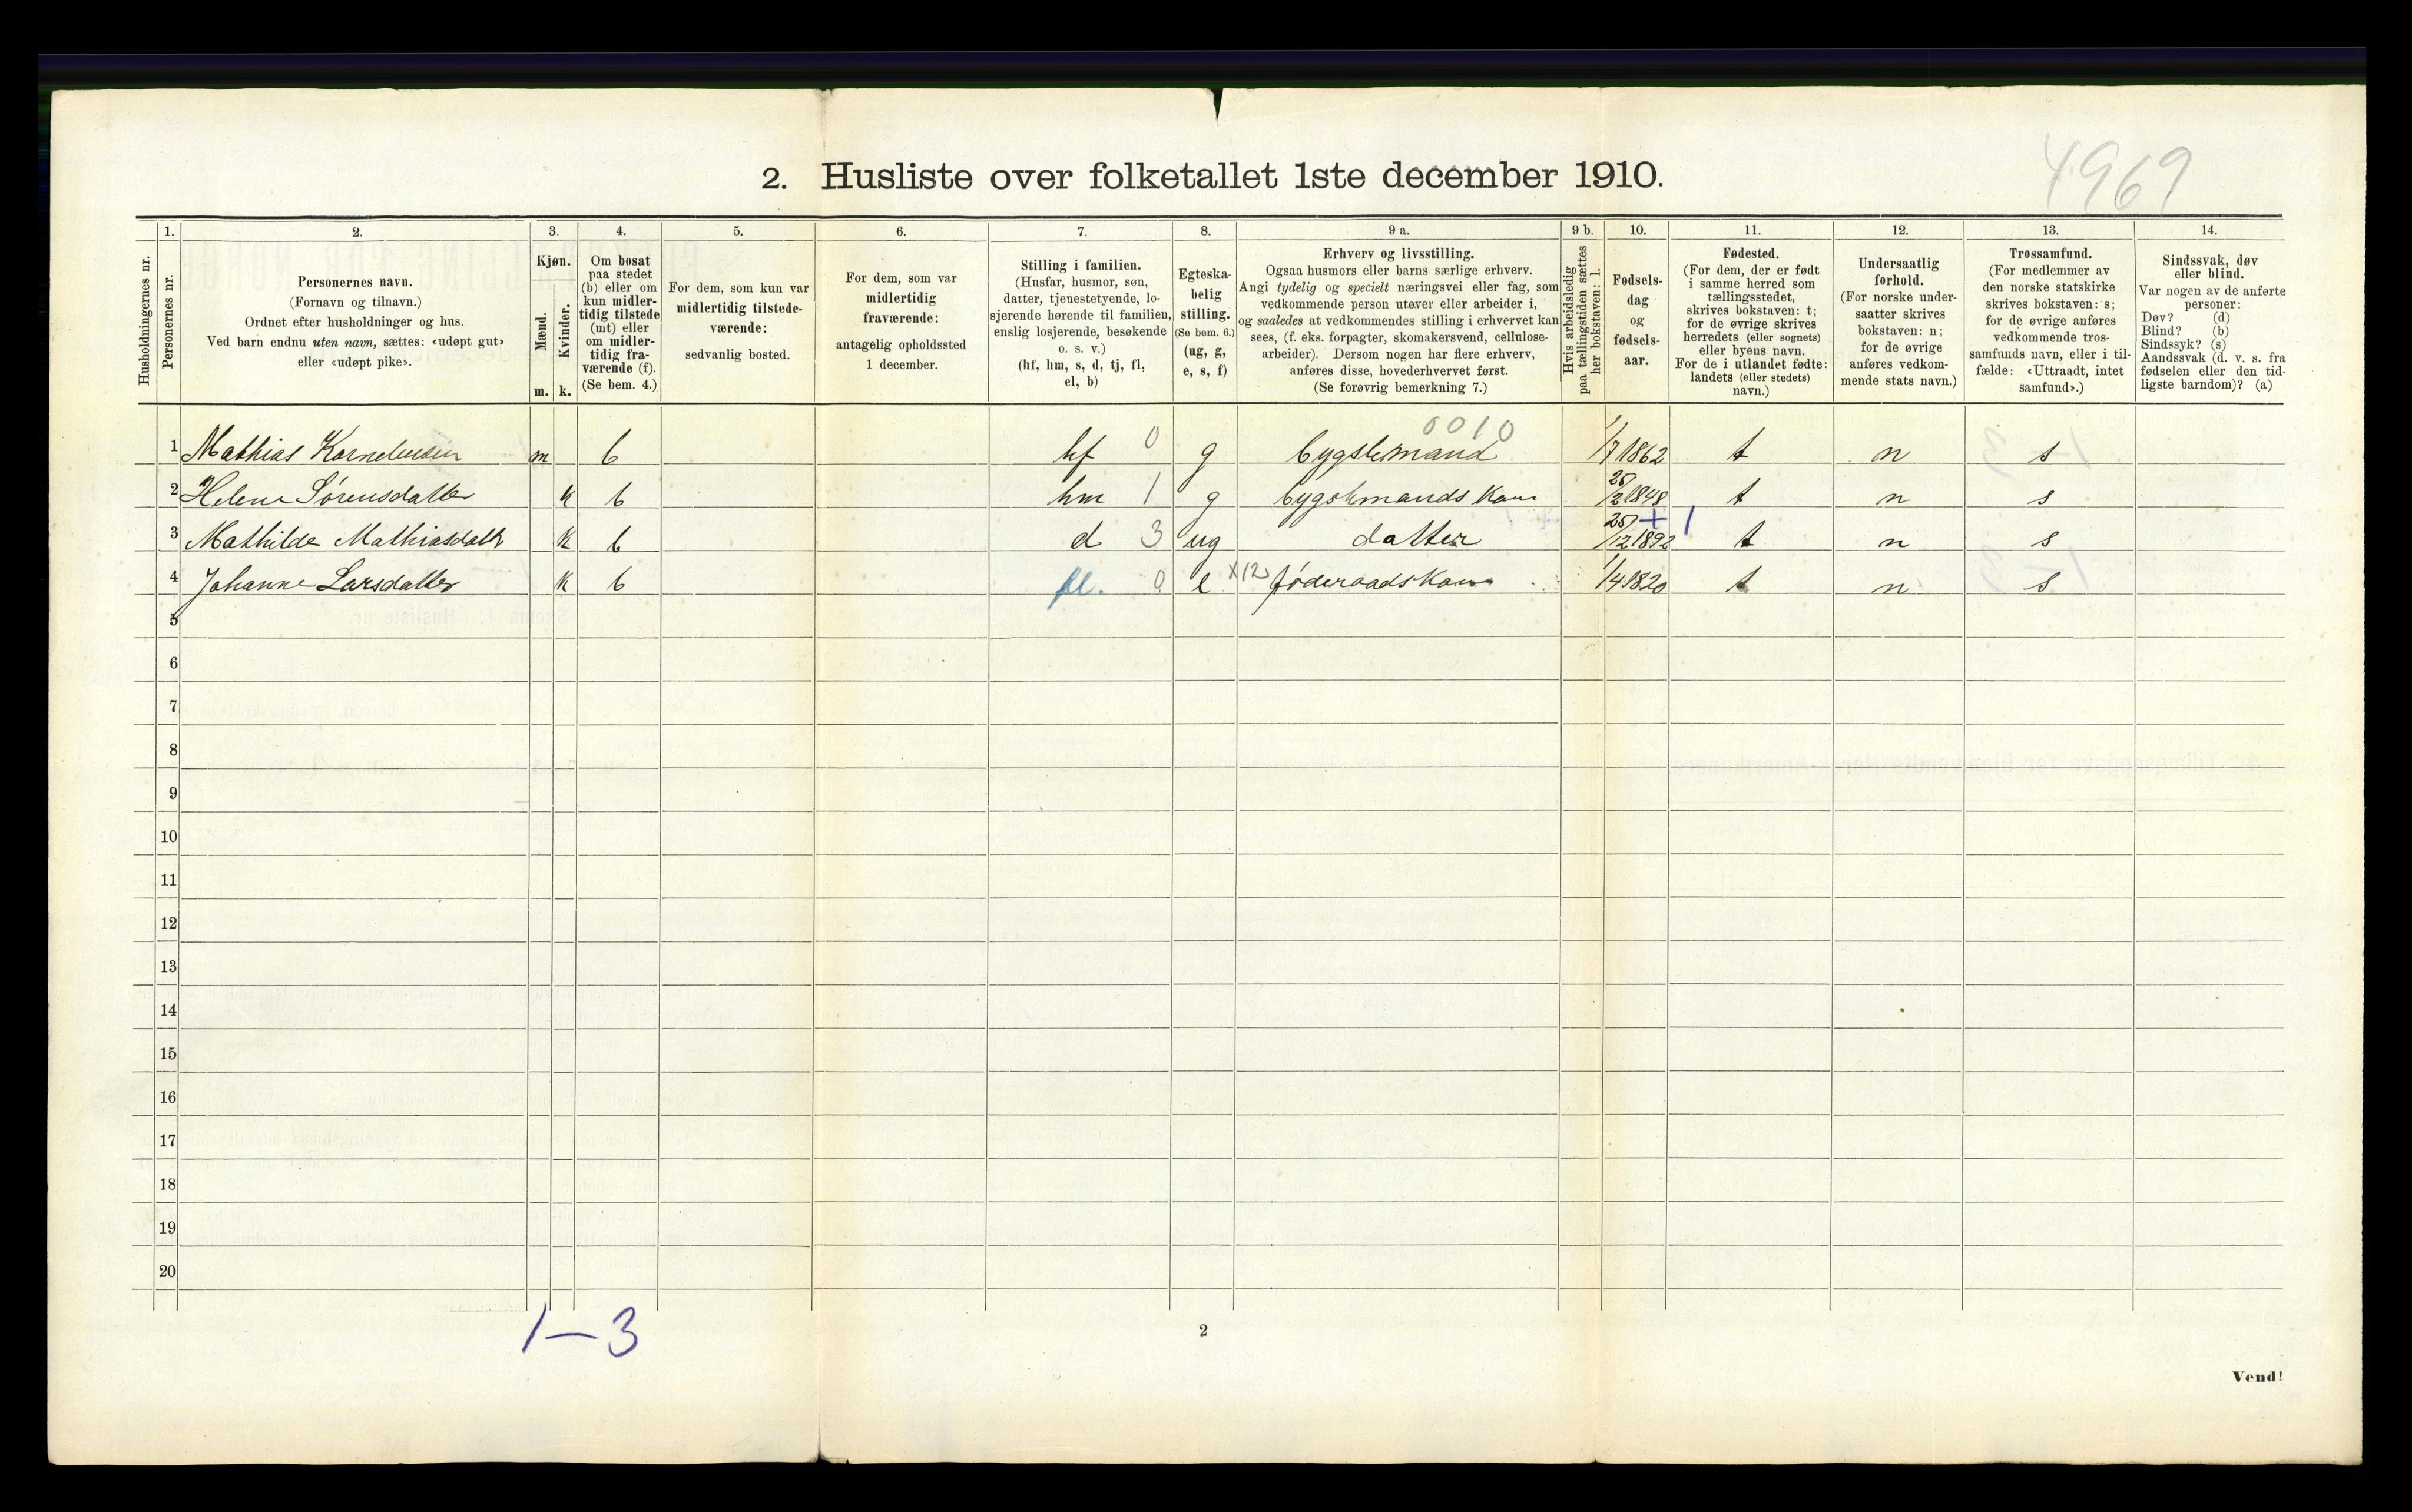 4969
2. Husliste over folketallet 1ste december 1910.
Husholdningernes nr.
1.
Personernes nr.
2.
Personernes navn.
(Fornavn og tilnavn.)
Ordnet efter husholdninger og hus.
Ved barn endnu uten navn, sættes: «udøpt gut»
eller «udøpt pike».
3.
Kjøn.
Mænd.
Kvinder.
m. k.
4.
Om bosat
paa stedet
(b) eller om
kun midler-
tidig tilstede
(mt) eller
om midler-
tidig fra-
værende (f).
(Se bem. 4.)
5.
For dem, som kun var
midlertidig tilstede-
værende:
sedvanlig bosted.
6.
For dem, som var
midlertidig
fraværende:
antagelig opholdssted
1 december.
7.
Stilling i familien.
(Husfar, husmor, søn,
datter, tjenestetyende, lo-
sjerende hørende til familien,
enslig losjerende, besøkende
o. s. v.)
(hf, hm, s, d, tj, fl,
el, b)
8.
Egteska-
belig
stilling.
(Se bem. 6.)
(ug, g,
e, s, f)
9 a.
Erhverv og livsstilling.
Ogsaa husmors eller barns særlige erhverv.
Angi tydelig og specielt næringsvei eller fag, som
vedkommende person utøver eller arbeider i,
og saaledes at vedkommendes stilling i erhvervet kan
sees, (f. eks. forpagter, skomakersvend, cellulose-
arbeider). Dersom nogen har flere erhverv,
anføres disse, hovederhvervet først.
(Se forøvrig bemerkning 7.)
9 b.
Hvis arbeidsledig
paa tællingstiden sættes
her bokstaven: l.
10.
Fødsels-
dag
og
fødsels-
aar.
11.
Fødested.
(For dem, der er født
i samme herred som
tællingsstedet,
skrives bokstaven: t;
for de øvrige skrives
herredets (eller sognets)
eller byens navn.
For de i utlandet fødte:
landets (eller stedets)
navn.)
12.
Undersaatlig
forhold.
(For norske under-
saatter skrives
bokstaven: n;
for de øvrige
anføres vedkom-
mende stats navn.)
13.
Trossamfund.
(For medlemmer av
den norske statskirke
skrives bokstaven: s;
for de øvrige anføres
vedkommende tros-
samfunds navn, eller i til-
fælde: «Uttraadt, intet
samfund».)
14.
Sindssvak, døv
eller blind.
Var nogen av de anførte
personer:
Døv? (d)
Blind? (b)
Sindssyk? (s)
Aandssvak (d. v. s. fra
fødselen eller den tid-
ligste barndom)? (a)
0010
1 Mathias Korneliussen m b hf 0 g bygslemand 1/7 1862 t n s
2 Helene Sørensdatter k b hm 1 g bygslemands Kone /2 1848 t n s
+ 1
3 Mathilde Mathiasdatt k b d 3 ug datter 25/12 1892 t n s
4 Johanne Larsdatter k b fl. 0 e X12 føderaads Kone 1/4 1820 t n s
5
6
7
8
9
10
11
12
13
14
15
16
17
18
19
20
1-3
2
Vend!